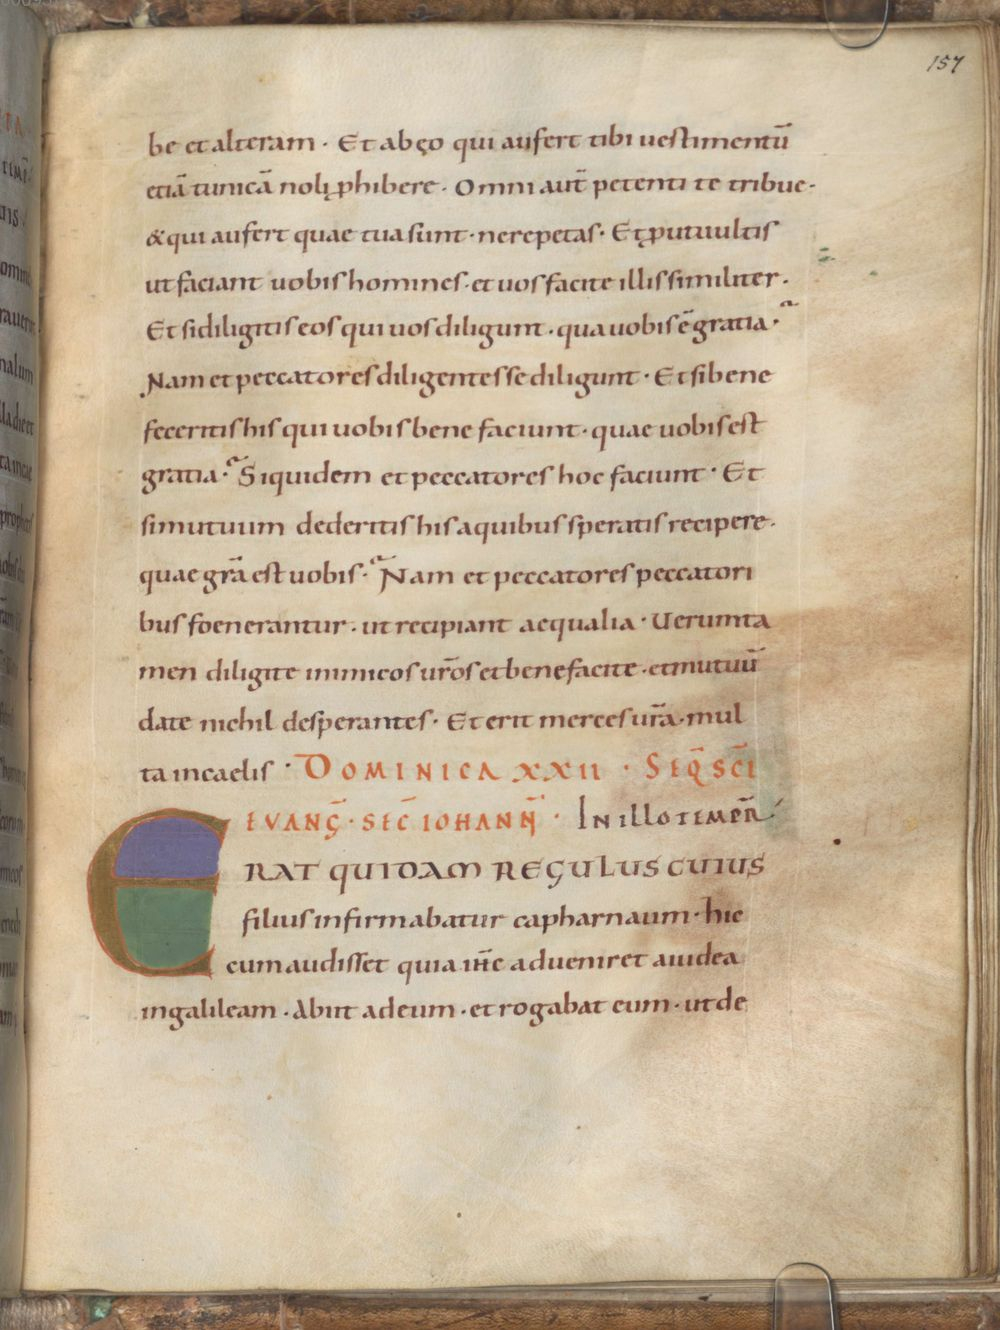 157
be et alteram · Et ab eo qui aufert tibi uestimentū
etiā tunicā noli ꝓhibere · Omni aut̄ petenti te tribue ·
& qui aufert quae tua sunt · ne repetas · Et ꝓut uultis
ut faciant uobis homines · et uos facite illis similiter .
Et si diligitis eos qui uos diligunt · qua uobis ē gratia ·
Nam et peccatores diligentes se diligunt · Et si bene
feceritis his qui uobis bene faciunt · quae uobis est
gratia · Siquidem et peccatores hoc faciunt · Et
si mutuum dederitis his a quibus speratis recipere ·
quae gr̄a est uobis · Nam et peccatores peccatori
bus foenerantur . ut recipiant aequalia · Uerumta
men diligite inimicos ur̄os et benefacite · et mutuū
date nichil desperantes · Et erit merces ur̄a · mul
ta in caelis · DOMINICA XXII · SEQ̄ SC̄I
EVANḠ · SEC̄ IOHANN̄ · IN ILLO TEMPR̄
ERAT QUIDAM REGULUS CUIUS
filius infirmabatur capharnaum · hic
cum audisset quia ihc̄ adueniret a iudea
in galileam · Abiit ad eum · et rogabat eum · ut de